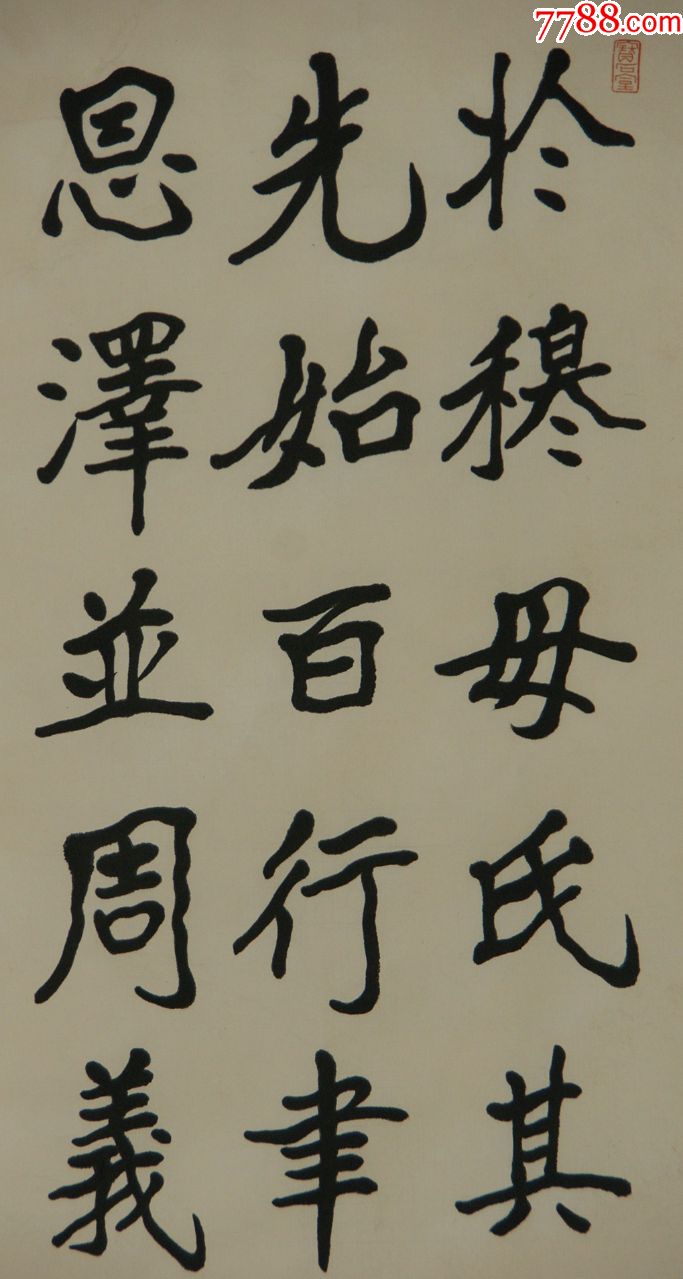 於穆毋氏其
先始百行聿
恩澤並周義
寶石室
7788.com